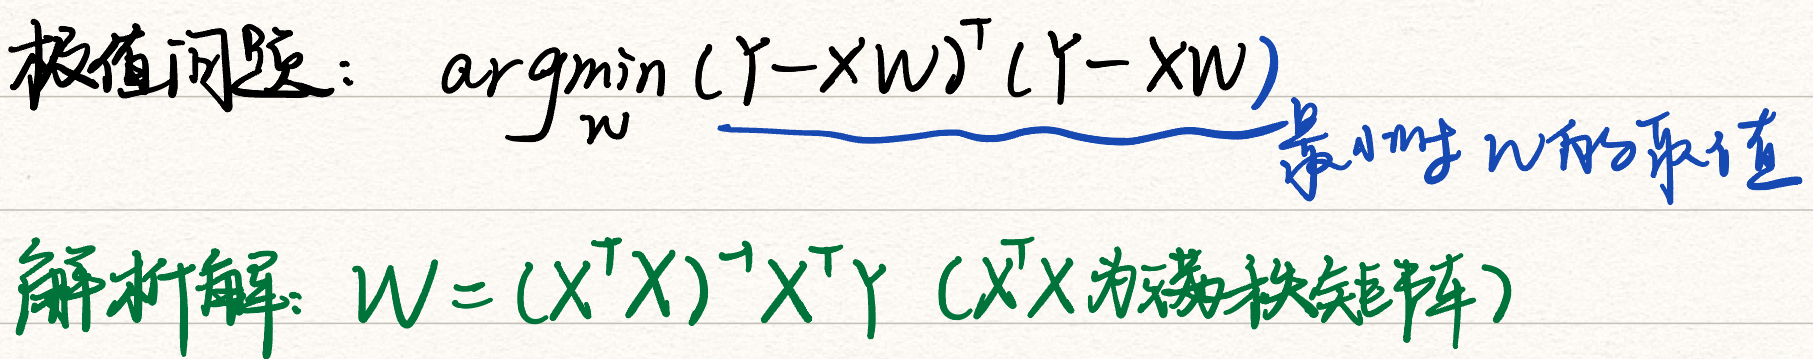 极值问题: argmin (Y-XW)ᵀ(Y-XW)
w
最小时 W的取值
解析解: W=(XᵀX)⁻¹XᵀY (XᵀX为满秩矩阵)